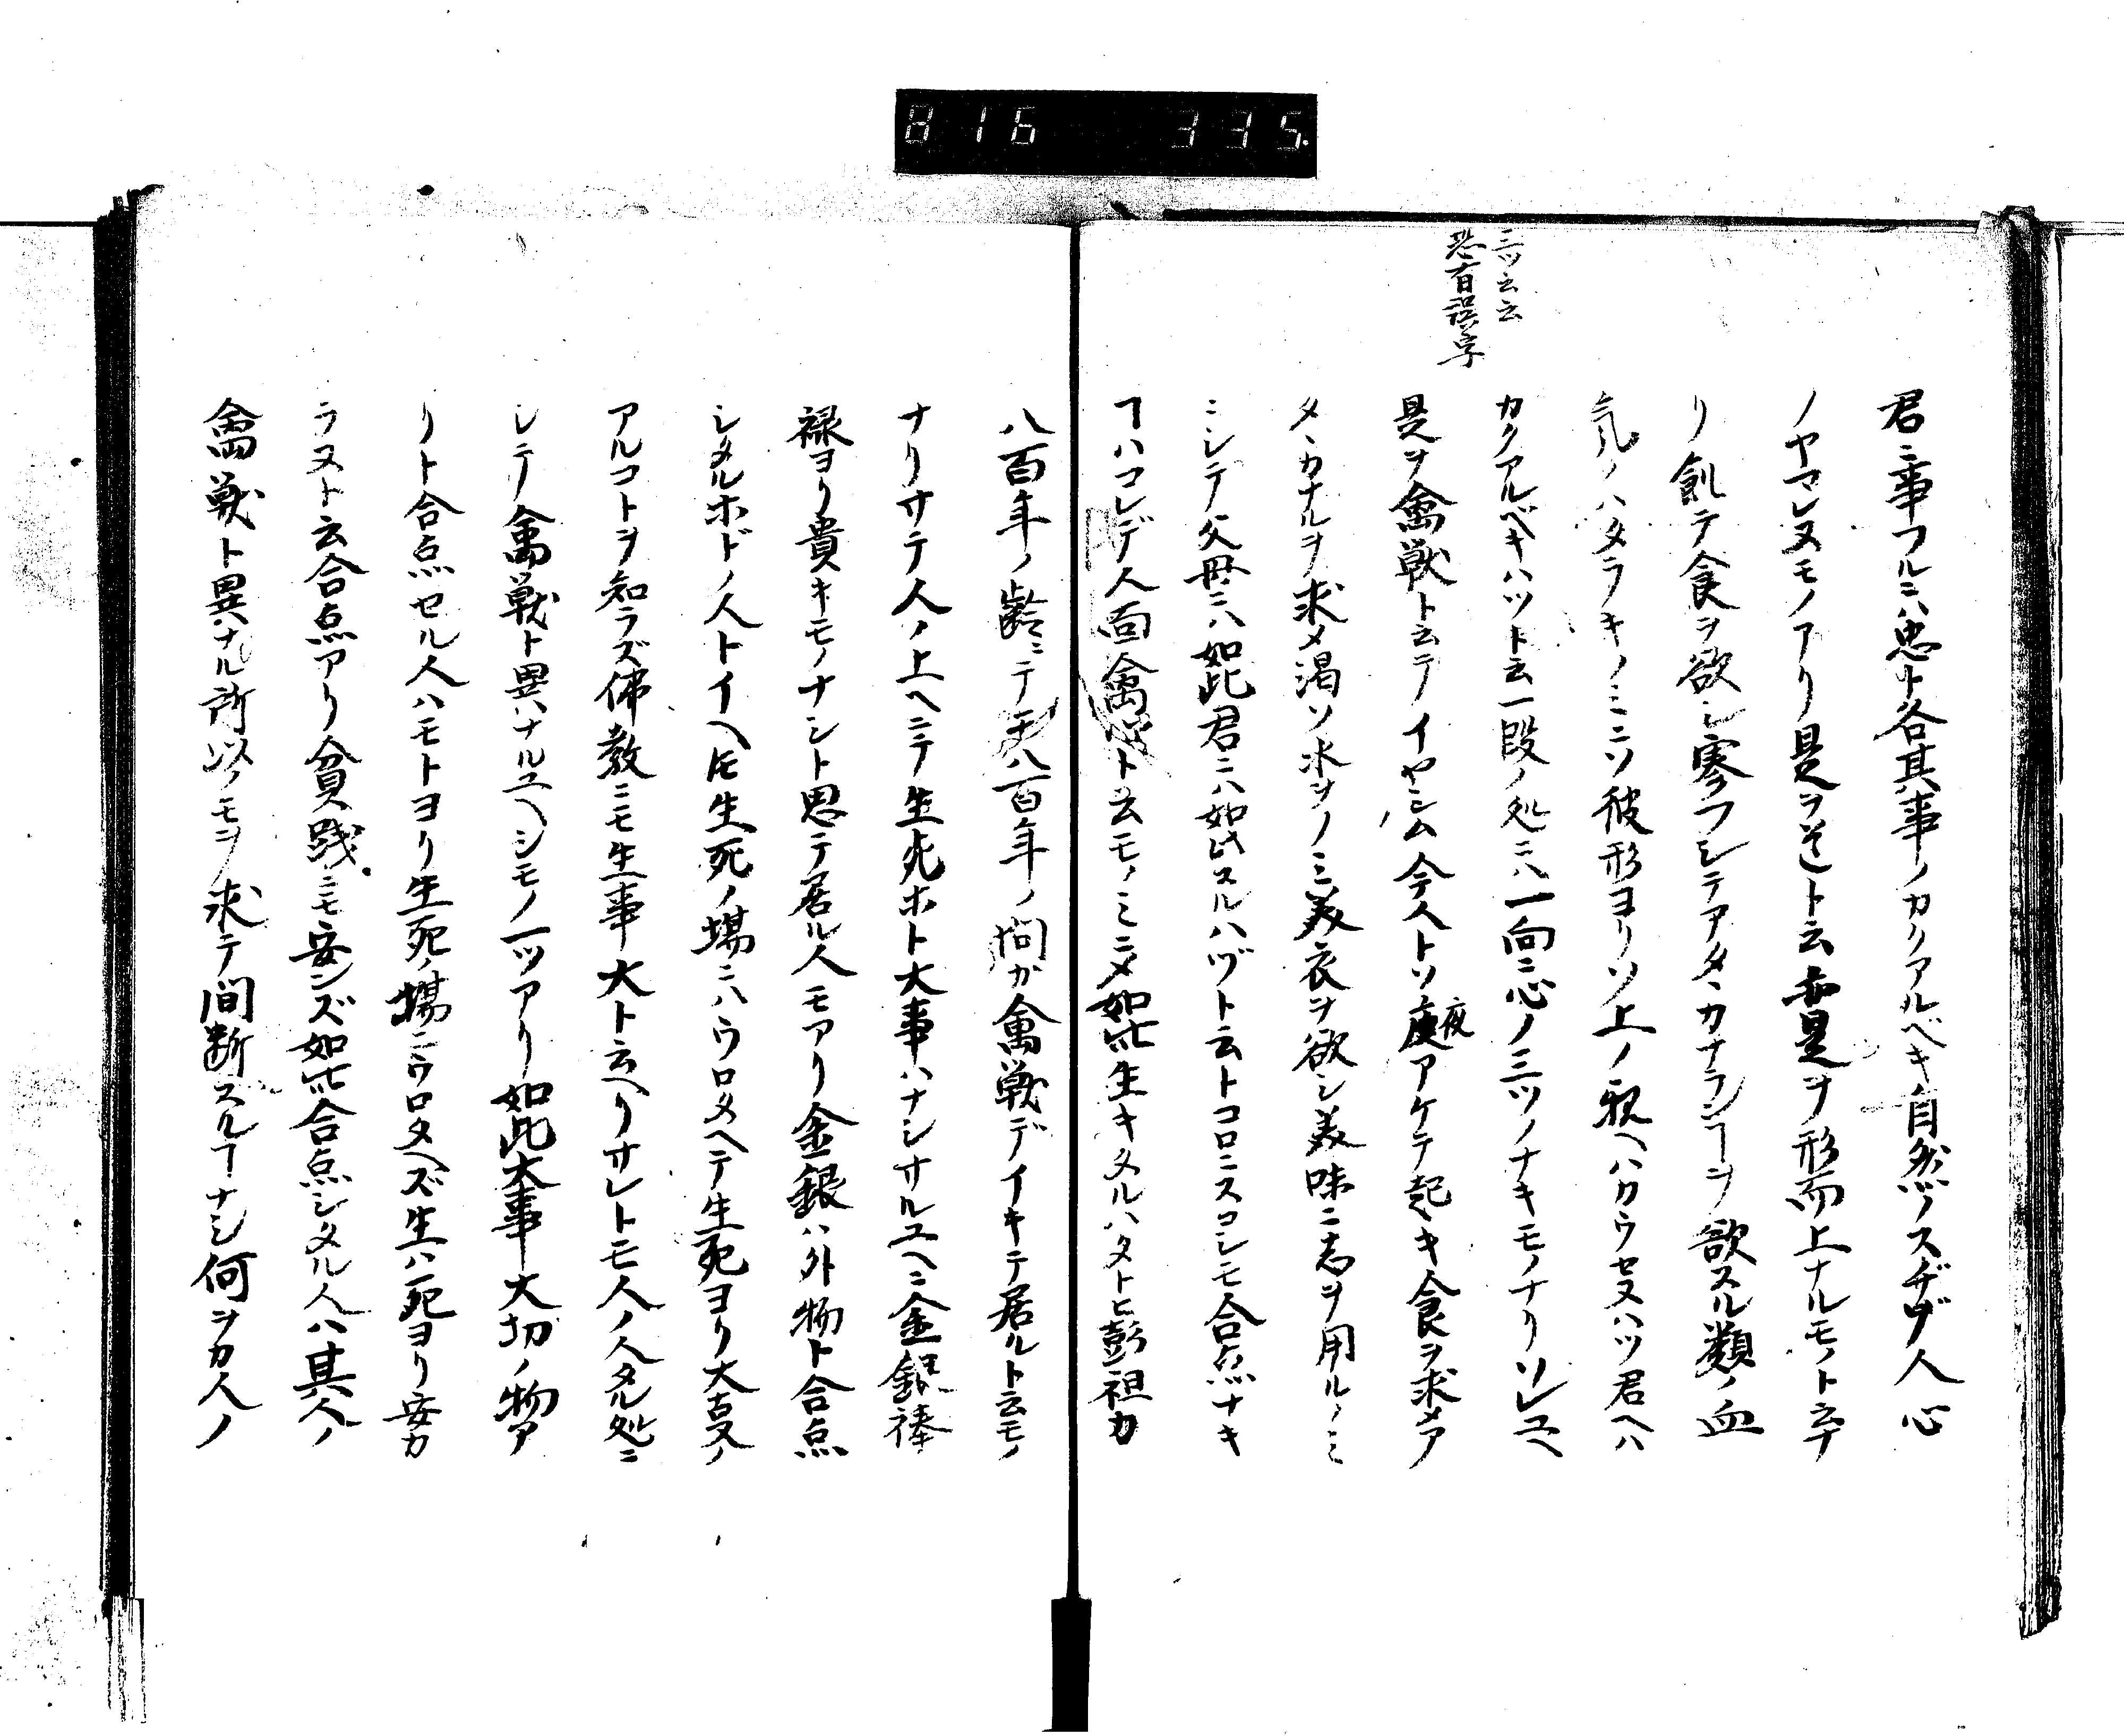 816 335.
三ツ云云
恐有誤字
君ニ事フルニハ忠ト各其事ノカクアルベキ自然ノスヂガ人心
ノヤマレヌモノアリ是ヲ道ト云是ヲ形而上ナルモノト云
リ飢テ食ヲ欲シ寒フシテアタヽカナランヿヲ欲スル類ノ血
気ノハタラキノミニソ彼形ヨリソ上ノ親ヘハカウセヌハツ君ヘハ
カクアルベキハツト云一段ノ処ニハ一向ニ心ノ三ツノナキモノナリソレユヘ
是ヲ禽獣ト云テノイヤシム今人トソ夜アケテ起キ食ヲ求メア
タヽカナルヲ求メ渇ソ水ヲノミ美衣ヲ欲シ美味ニ志ヲ用ルノミ
ニシテ父母ニハ如此君ニハ如此スルハヅト云トコロニスコシモ合点ナキ
ヿハコレデ人面禽心ト云モノミニソ如此生キタルハタトヒ彭祖カ
八百年ノ齢ニテモ八百年ノ間カ禽獣デイキテ居ルト云モノ
ナリサテ人ノ上ヘニテ生死ホト大事ハナシサルユヘニ金銀捧
禄ヨリ貴キモノナシト思テ居ル人モアリ金銀ハ外物ト合点
シタルホドノ人トイヘ𪜈生死ノ場ニハウロタヘテ生死ヨリ大事ノ
アルコトヲ知ラズ佛教ニモ生事大ト云ヘリサレトモ人ノ人タル処ニ
シテ禽獣ト異ハナルユヘシモノ一ツアリ如此大事大切ノ物ア
リト合点セル人ハモトヨリ生死ノ場ニウロタヘズ生ハ死ヨリ安カ
ラヌト云合点アリ貧賎ニモ安ンズ如此合点シタル人ハ其人ノ
禽獣ト異ナル所以ノモヲ求テ間断スルヿナシ何ヲカ人ノ